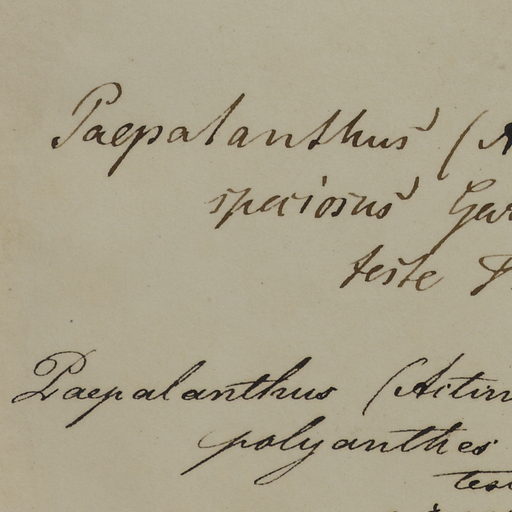 Paepalanthus (A
speciosus Gar
teste
Paepalanthus (Actin
polyanthes
tes